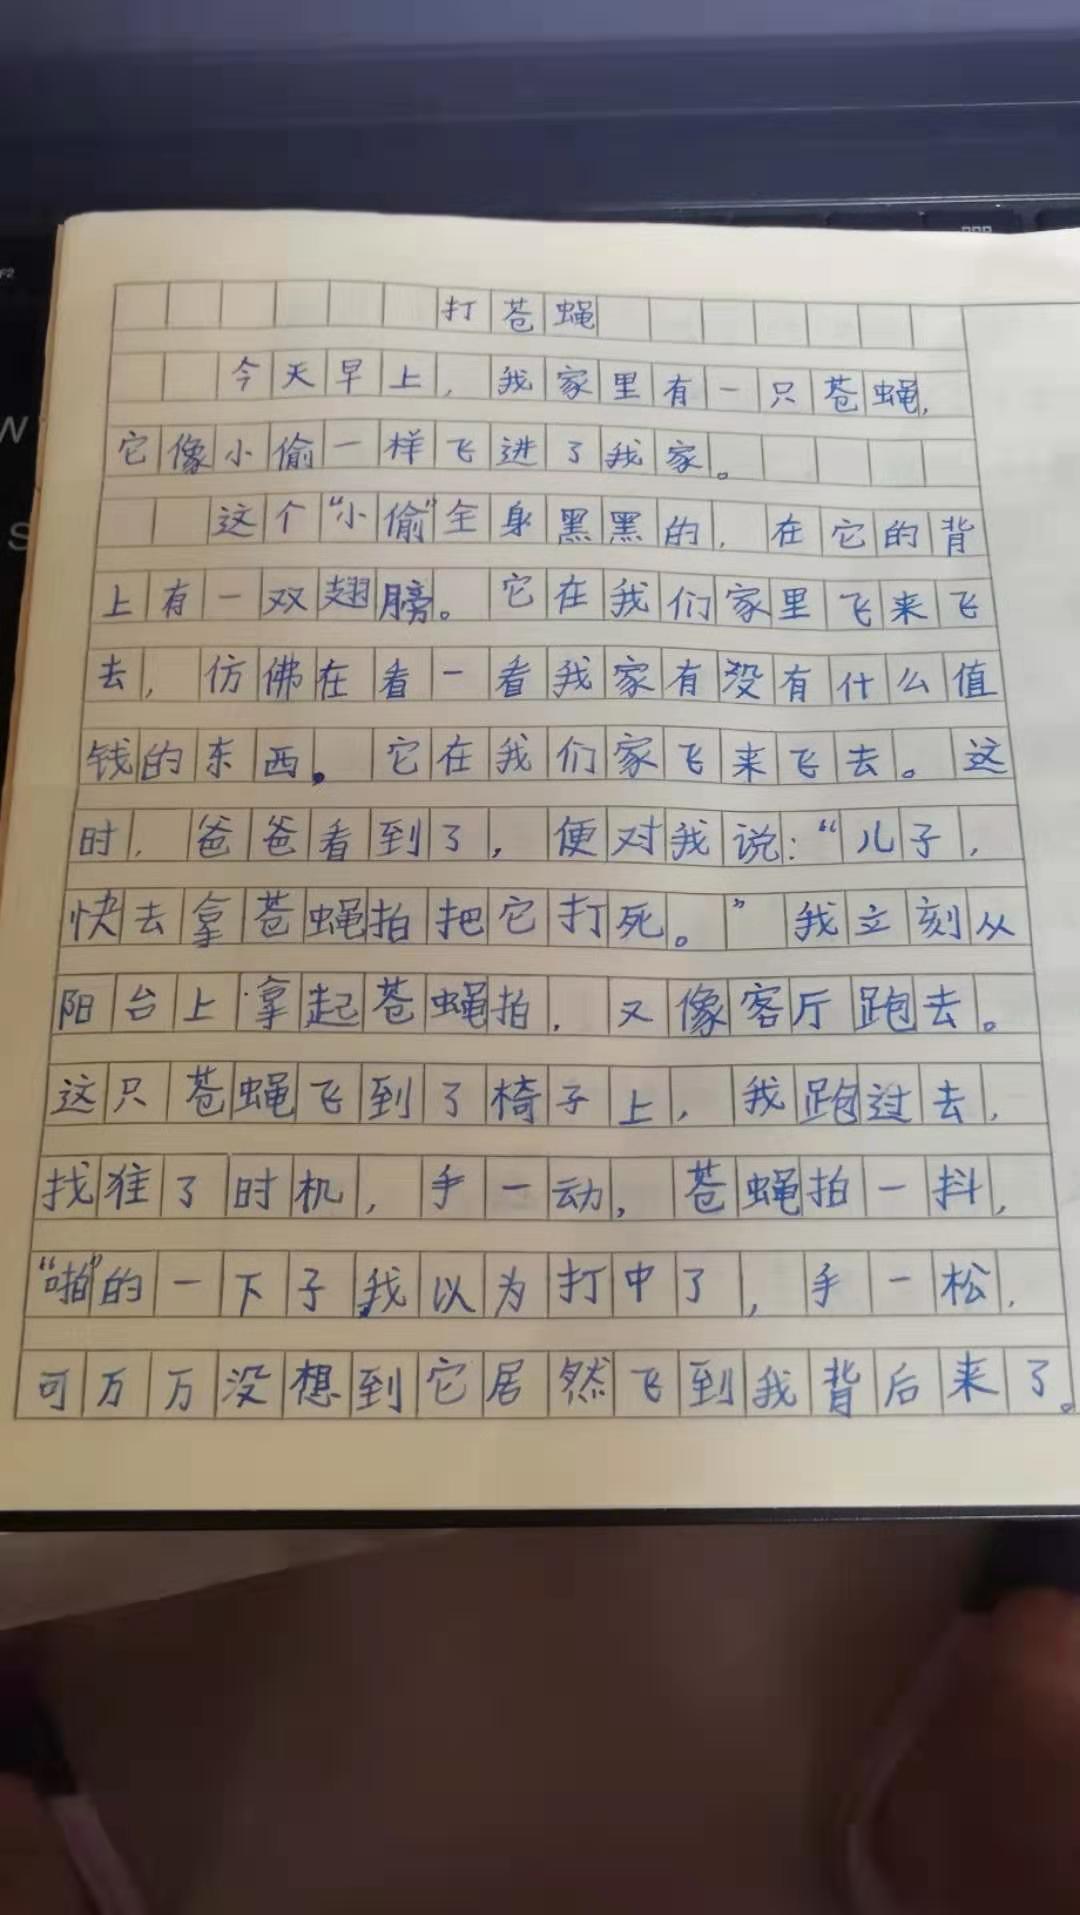 打苍蝇
今天早上，我家里有一只苍蝇，
它像小偷一样飞进了我家。
这个“小偷”全身黑黑的，在它的背
上有一双翅膀。它在我们家里飞来飞
去，仿佛在看一看我家有没有什么值
钱的东西。它在我们家飞来飞去。这
时，爸爸看到了，便对我说：“儿子，
快去拿苍蝇拍把它打死。”我立刻从
阳台上拿起苍蝇拍，又像客厅跑去。
这只苍蝇飞到了椅子上，我跑过去，
找准了时机，手一动，苍蝇拍一抖，
“啪”的一下子我以为打中了，手一松，
可万万没想到它居然飞到我背后来了。
F2
W
S